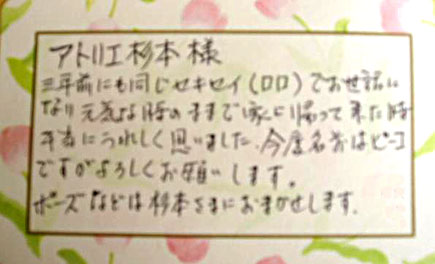 アトリエ杉本様
三年前にも同じセキセイ(ロロ)でお世話に
なり元気な時のままで家に帰って来た時
本当にうれしく思いました.今度名前はピーコ
ですがよろしくお願いします。
ポーズなどは杉本さまにおまかせします.